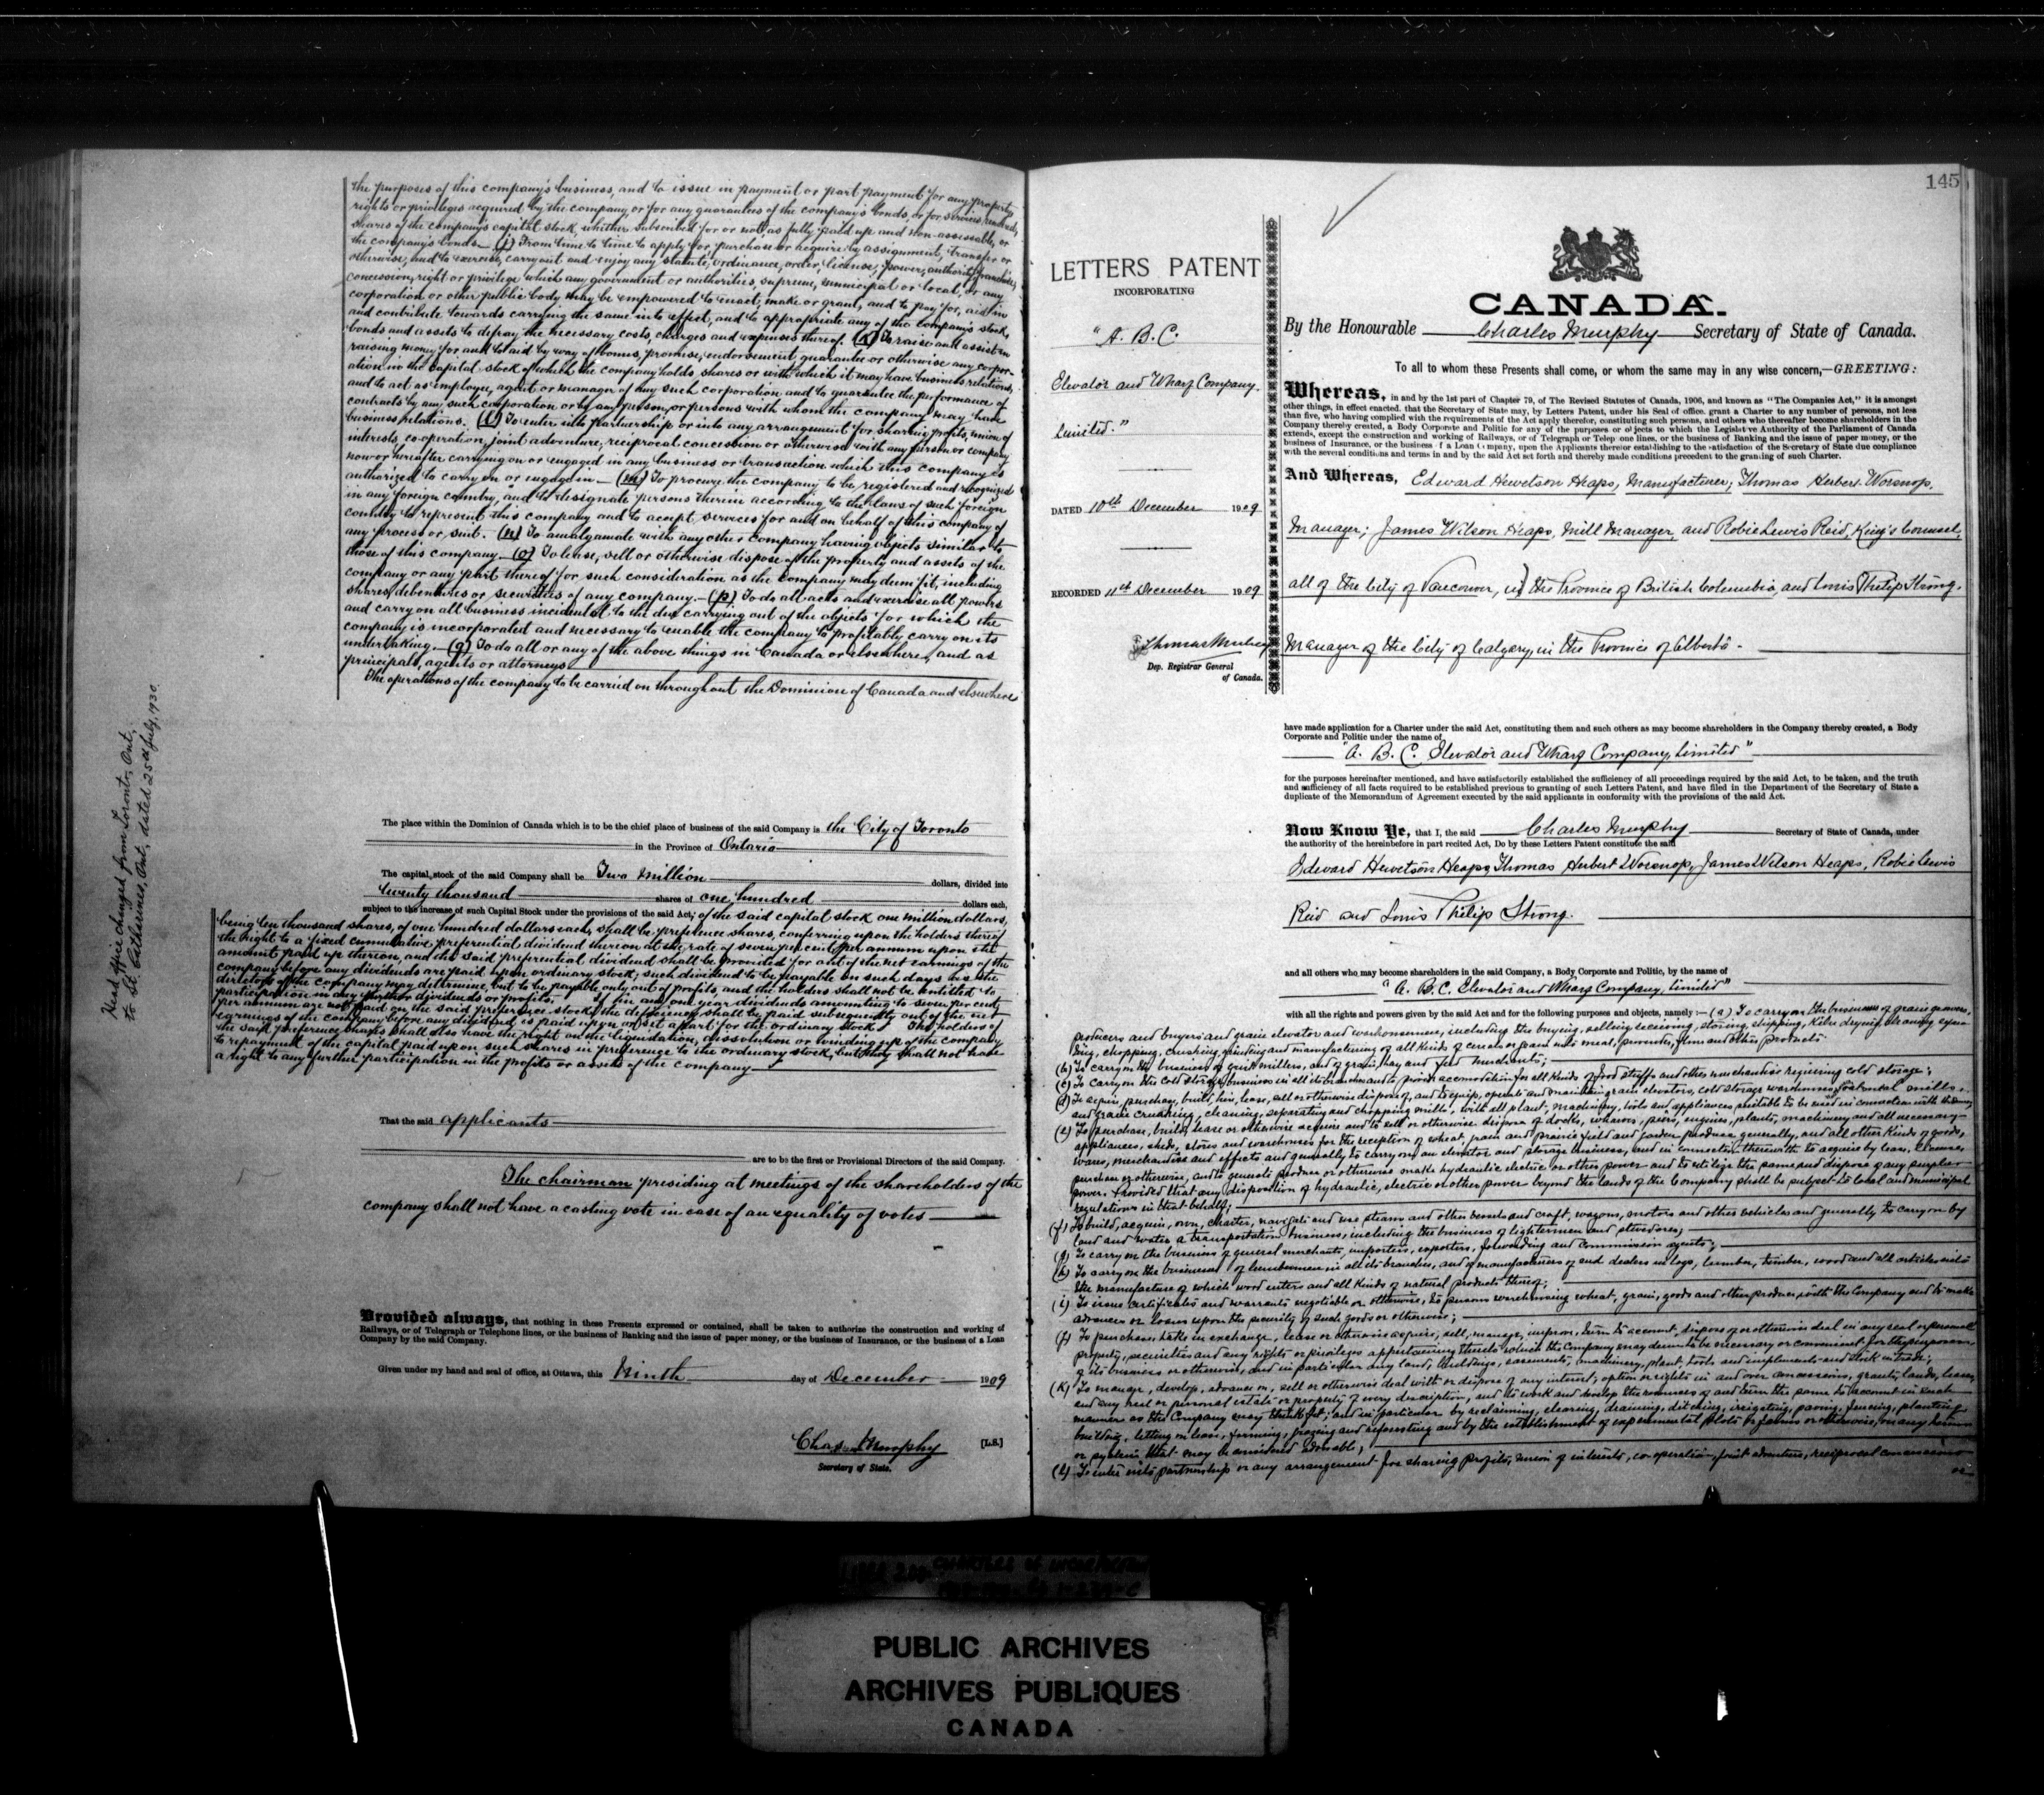 the purposes of this company's business, and to issue in payment or part payment for any property
rights or privileges acquired by the company, or for any guarantees of the company's bonds, or for services rendered,
shares of the company's capital stock, whether subscribed for or not as fully paid up and non-assessable, or
the company's bonds.— (j) From time to time to apply for purchase or acquire by assignment, transfer or
otherwise, and to exercise, carry out and enjoy any statute, ordinance, order, license, power, authority, franchise,
concession, right or privilege which any government or authorities, supreme, municipal or local, or any
corporation or other public body may be empowered to enact, make or grant, and to pay for, aid in
and contribute towards carrying the same into effect, and to appropriate any of the company's stock,
bonds and assets to defray the necessary costs, charges and expenses thereof. (k) To raise and assist in
raising money for and to aid by way of bonus, promise, endorsement, guarantee or otherwise any corpor-
ation in the capital stock of which the company holds shares or with which it may have business relations,
and to act as employee, agent or manager of any such corporation and to guarantee the performance of
contracts by any such corporation or by any person or persons with whom the company may have
business relations. (l) To enter into partnership or into any arrangement for sharing profits, union of
interests, co-operation, joint adventure, reciprocal concession or otherwise with any person or company
now or hereafter carrying on or engaged in any business or transaction which this company is
authorized to carry on or engage in.— (m) To procure the company to be registered and recognized
in any foreign country, and to designate persons therein according to the laws of such foreign
country to represent this company and to accept services for and on behalf of this company of
any process or suit. (n) To amalgamate with any other company having objects similar to
those of this company.— (o) To lease, sell or otherwise dispose of the property and assets of the
company or any part thereof for such consideration as the company may deem fit, including
shares, debentures or securities of any company.— (p) To do all acts and exercise all powers
and carry on all business incidental to the due carrying out of the objects for which the
company is incorporated and necessary to enable the company to profitably carry on its
undertaking.— (q) To do all or any of the above things in Canada or elsewhere, and as
principals, agents or attorneys
The operations of the company to be carried on throughout the Dominion of Canada and elsewhere
Head office changed from Toronto, Ont.,
to St. Catharines, Ont., dated 25th July, 1930.
The place within the Dominion of Canada which is to be the chief place of business of the said Company is the City of Toronto
in the Province of Ontario
The capital stock of the said Company shall be Two Million dollars, divided into
twenty thousand shares of one hundred dollars each,
subject to the increase of such Capital Stock under the provisions of the said Act; of the said capital stock one million dollars,
being ten thousand shares, of one hundred dollars each, shall be preference shares, conferring upon the holders thereof
the right to a fixed cumulative preferential dividend thereon at the rate of seven per cent per annum upon the
amount paid up thereon, and the said preferential dividend shall be provided for out of the net earnings of the
company before any dividends are paid upon ordinary stock; such dividend to be payable on such days as the
directors of the company may determine, but to be payable only out of profits and the holders shall not be entitled to
participation in any further dividends or profits. If in any one year dividends amounting to seven per cent
per annum are not paid on the said preference stock, the deficiency shall be paid subsequently out of the net
earnings of the company before any dividend is paid upon or set apart for the ordinary stock. The holders of
the said preference shares shall also have the right on the liquidation, dissolution or winding up of the company
to repayment of the capital paid upon such shares in preference to the ordinary stock, but they shall not have
a right to any further participation in the profits or assets of the company
That the said applicants
are to be the first or Provisional Directors of the said Company.
The chairman presiding at meetings of the shareholders of the
company shall not have a casting vote in case of an equality of votes
Provided always, that nothing in these Presents expressed or contained, shall be taken to authorize the construction and working of
Railways, or of Telegraph or Telephone lines, or the business of Banking and the issue of paper money, or the business of Insurance, or the business of a Loan
Company by the said Company.
Given under my hand and seal of office, at Ottawa, this Ninth day of December 1909
Chas. Murphy [L.S.]
Secretary of State.
145
LETTERS PATENT
INCORPORATING
"A. B. C.
Elevator and Wharf Company.
Limited."
DATED 10th December 1909
RECORDED 11th December 1909
Thomas Mulvey
Dep. Registrar General
of Canada.
CANADA.
By the Honourable Charles Murphy Secretary of State of Canada.
To all to whom these Presents shall come, or whom the same may in any wise concern,—GREETING:
Whereas, in and by the 1st part of Chapter 79, of The Revised Statutes of Canada, 1906, and known as "The Companies Act," it is amongst
other things, in effect enacted, that the Secretary of State may, by Letters Patent, under his Seal of office, grant a Charter to any number of persons, not less
than five, who having complied with the requirements of the Act apply therefor, constituting such persons, and others who thereafter become shareholders in the
Company thereby created, a Body Corporate and Politic for any of the purposes or objects to which the Legislative Authority of the Parliament of Canada
extends, except the construction and working of Railways, or of Telegraph or Telephone lines, or the business of Banking and the issue of paper money, or the
business of Insurance, or the business of a Loan Company, upon the Applicants therefor establishing to the satisfaction of the Secretary of State due compliance
with the several conditions and terms in and by the said Act set forth and thereby made conditions precedent to the granting of such Charter.
And Whereas, Edward Hewetson Heaps, Manufacturer; Thomas Herbert Worsnop,
Manager; James Wilson Heaps, Mill Manager, and Robie Lewis Reid, King's Counsel,
all of the City of Vancouver, in the Province of British Columbia, and Louis Philip Strong.
Manager of the City of Calgary, in the Province of Alberta.
have made application for a Charter under the said Act, constituting them and such others as may become shareholders in the Company thereby created, a Body
Corporate and Politic under the name of
"A. B. C. Elevator and Wharf Company, Limited"
for the purposes hereinafter mentioned, and have satisfactorily established the sufficiency of all proceedings required by the said Act, to be taken, and the truth
and sufficiency of all facts required to be established previous to granting of such Letters Patent, and have filed in the Department of the Secretary of State a
duplicate of the Memorandum of Agreement executed by the said applicants in conformity with the provisions of the said Act.
Now Know Ye, that I, the said Charles Murphy Secretary of State of Canada, under
the authority of the hereinbefore in part recited Act, Do by these Letters Patent constitute the said
Edward Hewetson Heaps, Thomas Herbert Worsnop, James Wilson Heaps, Robie Lewis
Reid and Louis Philip Strong.
and all others who may become shareholders in the said Company, a Body Corporate and Politic, by the name of
"A. B. C. Elevator and Wharf Company, Limited"
with all the rights and powers given by the said Act and for the following purposes and objects, namely:— (a) To carry on the business of grain growers,
producers and buyers and grain elevator and warehousemen, including the buying, selling, receiving, storing, shipping, kiln drying, cleaning, separa-
ting, chopping, crushing, grinding and manufacturing of all kinds of cereals or grain into meal, provender, flour and other products.
(b) To carry on the business of grist millers, and of grain, hay and feed merchants;
(c) To carry on the cold storage business in all its branches and to provide accomodation for all kinds of food stuffs and other merchandise requiring cold storage;
(d) To acquire, purchase, build, hire, lease, sell or otherwise dispose of, and to equip, operate and maintain grain elevators, cold storage warehouses, oatmeal mills,
and grain crushing, cleaning, separating and chopping mills, with all plant, machinery, tools and appliances suitable to be used in connection with the same;
(e) To purchase, build, lease or otherwise acquire and to sell or otherwise dispose of docks, wharves, piers, engines, plants, machinery and all necessary
appliances, sheds, stores and warehouses for the reception of wheat, grain and prairie field and garden produce generally, and all other kinds of goods,
wares, merchandise and effects and generally to carry on an elevator and storage business, and in connection therewith to acquire by lease, license,
purchase or otherwise, and to generate produce or otherwise make hydraulic electric or other power and to utilize the same and dispose of any surplus
power. Provided that any disposition of hydraulic, electric or other power beyond the lands of the Company shall be subject to local and municipal
regulations in that behalf;
(f) To build, acquire, own, charter, navigate and use steam and other vessels and craft, wagons, motors and other vehicles and generally to carry on by
land and water a transportation business, including the business of lightermen and stevedores;
(g) To carry on the business of general merchants, importers, exporters, forwarding and commission agents;
(h) To carry on the business of lumbermen in all its branches, and of manufacturers of and dealers in logs, lumber, timber, wood and all articles into
the manufacture of which wood enters and all kinds of natural products thereof;
(i) To issue certificates and warrants negotiable or otherwise, to persons warehousing wheat, grain, goods and other produce with the Company and to make
advances or loans upon the security of such goods or otherwise;
(j) To purchase, take in exchange, lease or otherwise acquire, sell, manage, improve, turn to account, dispose of or otherwise deal in any real or personal
property, securities and any rights or privileges appertaining thereto which the Company may deem to be necessary or convenient for the purposes
of its business or otherwise, and in particular any land, buildings, easements, machinery, plant, tools and implements and stock in trade;
(k) To manage, develop, advance on, sell or otherwise deal with or dispose of any interest, option or rights in and over concessions, grants, lands, leases
and any real or personal estate or property of every description, and to work and develop the resources of and turn the same to account in such
manner as the Company may think fit; and in particular by reclaiming, clearing, draining, ditching, irrigating, paving, fencing, planting,
building, letting on lease, farming, grazing and reforesting and by the establishment of experimental plots or farms or otherwise, in any
or system that may be considered advisable;
(l) To enter into partnership or any arrangement for sharing profits, union of interests, co-operation, joint adventure, reciprocal concessions
or
PUBLIC ARCHIVES
ARCHIVES PUBLIQUES
CANADA